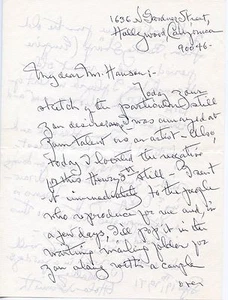 1656 N Gardner Street,
Hollywood California
90046 -
My dear Mr Hanson; -
Today your
sketch of the particular still
you desire and I was amazed at
your talent as an artist - Also,
today I located the negative
of the Henry 5th still - I sent
it immediately to the people
who reproduce for me and in
a few days, I'll pop it in the
waiting mailing folder for
you along with a couple
over